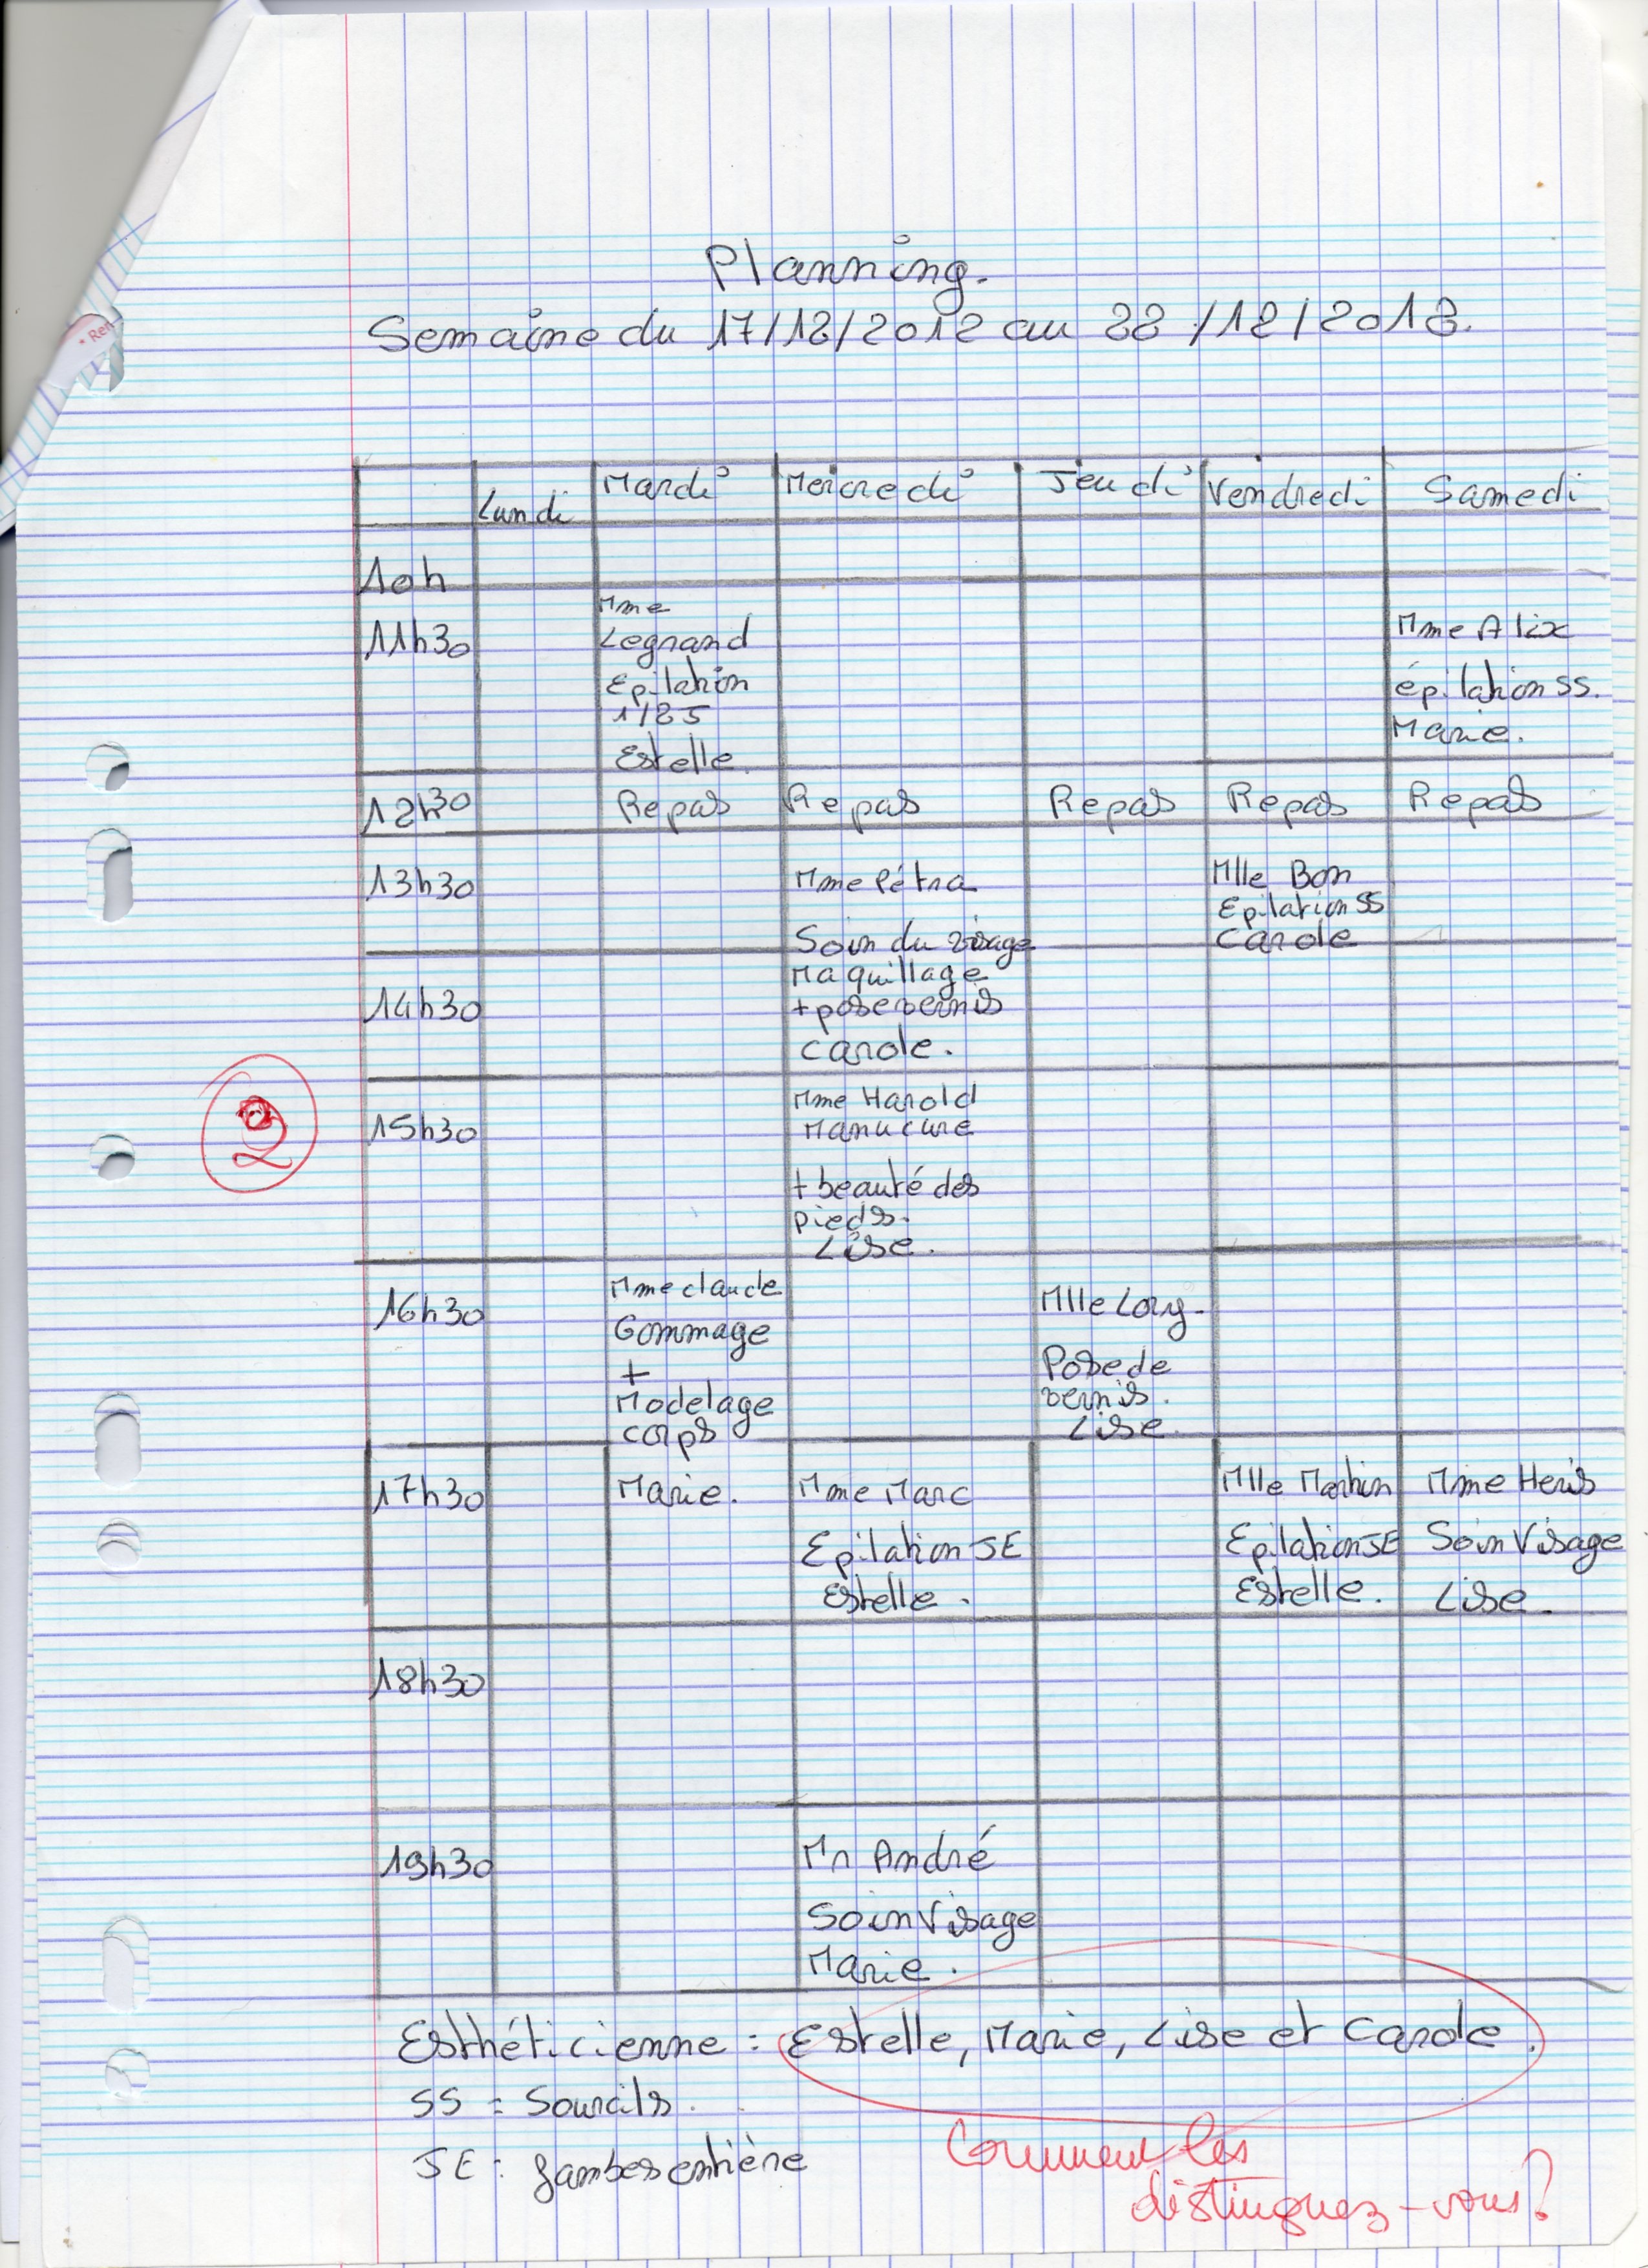 Planning.
Semaine du 17/12/2012 au 22/12/2012.
Lundi Mardi Mercredi Jeudi Vendredi Samedi
10h
11h30
Mme
Legrand
Epilation
1/2J
Estelle.
Mme Alix
épilation SS.
Marie.
12h30 Repas Repas Repas Repas Repas
13h30
Mme Pétra
Soin du visage
Maquillage
+ pose vernis
Carole.
Mlle Bon
Epilation SS
Carole
14h30
15h30
Mme Harold
Manucure
+ beauté des
pieds.
Lise.
16h30
Mme Claude
Gommage
+
Modelage
corps
Marie.
Mlle Lory.
Pose de
vernis.
Lise.
17h30
Mme Marc
Epilation JE
Estelle.
Mlle Martin
Epilation JE
Estelle.
Mme Heris
Soin Visage
Lise.
18h30
19h30
Mr André
Soin Visage
Marie.
Esthéticienne : Estelle, Marie, Lise et Carole.
SS = Sourcils.
JE : Jambes entière
Comment les
distinguez-vous?
2
Ren